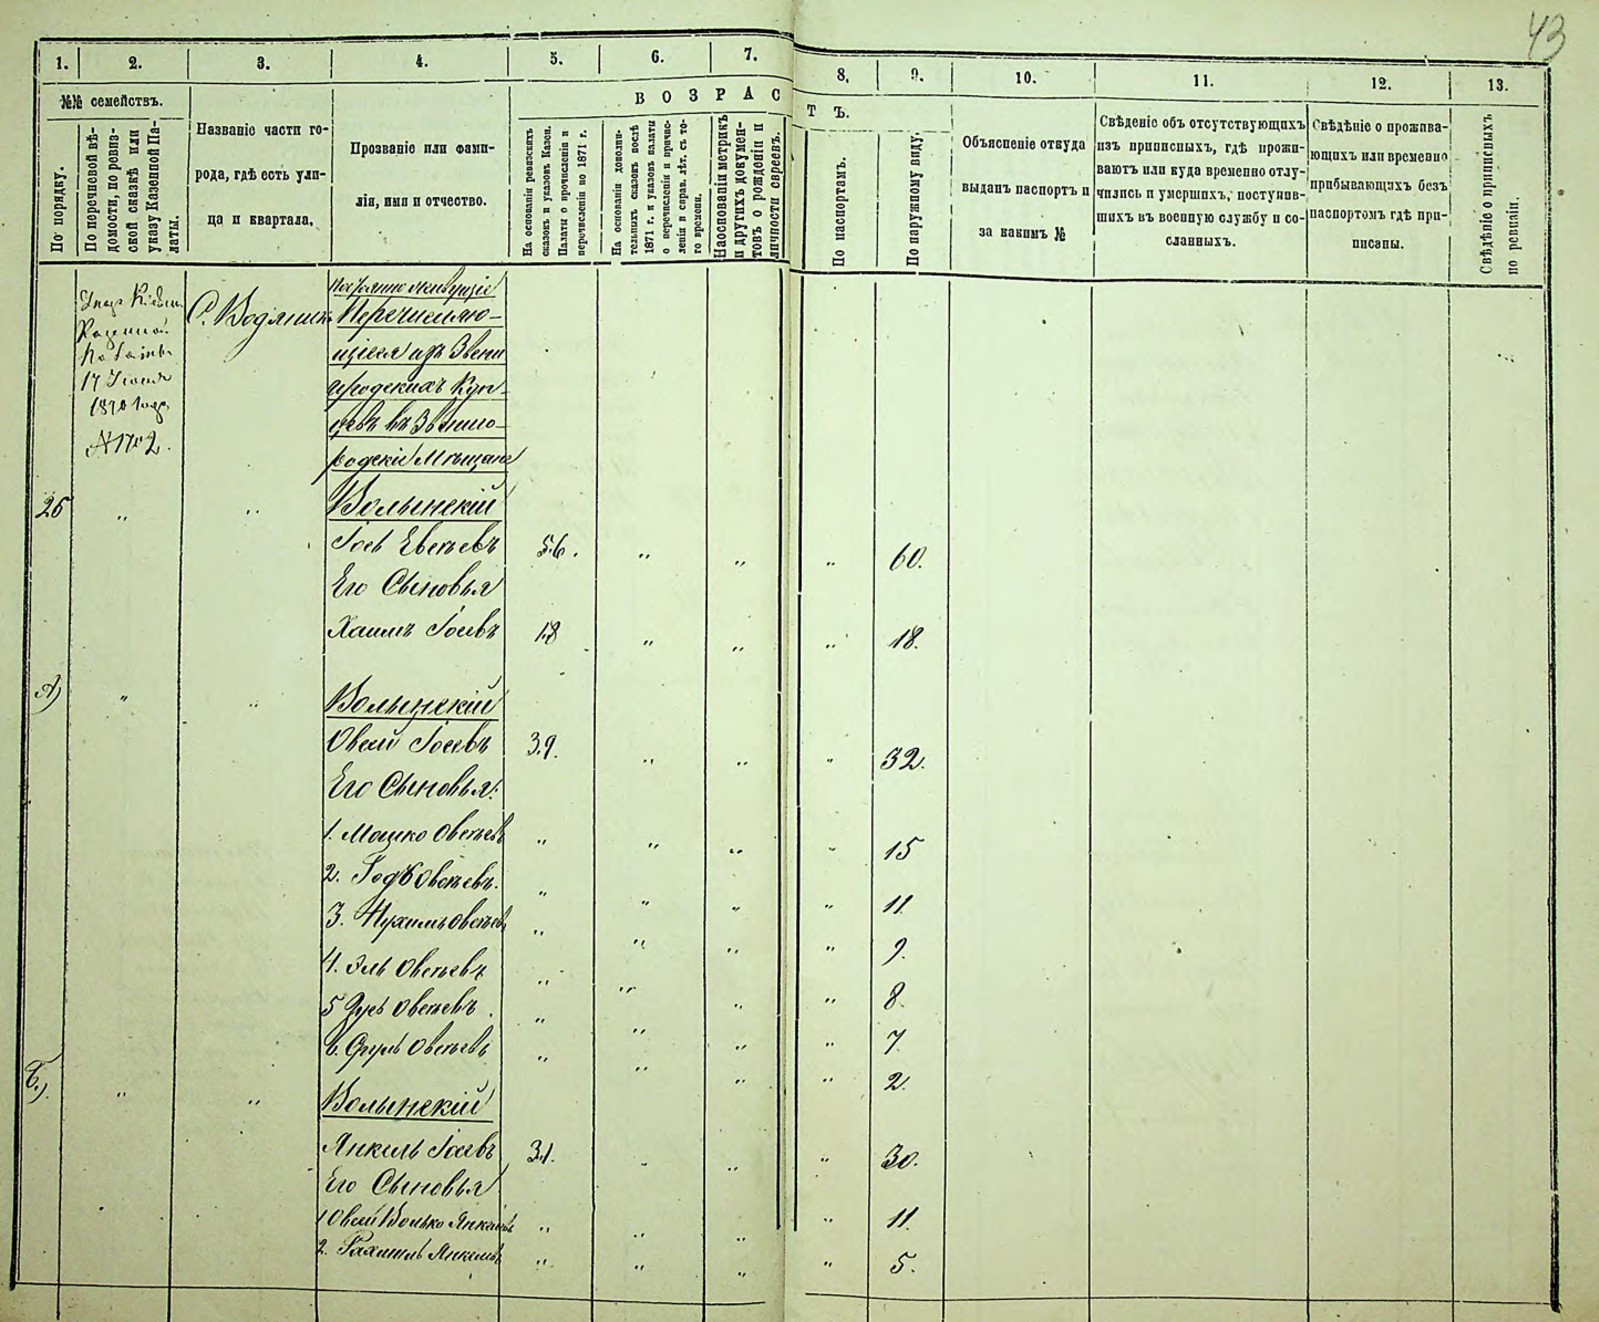 43
1. 2. 3. 4. 5. 6. 7. 8. 9. 10. 11. 12. 13.
№№ семействъ.
По порядку.
По перечневой вѣ-
домости, по ревиз-
ской сказкѣ или
указу Казенной Па-
латы.
Названіе части го-
рода, гдѣ есть ули-
ца и квартала.
Прозваніе или фами-
лія, имя и отчество.
ВОЗРАСТЪ.
На основаніи ревизскихъ
сказокъ и указовъ Казен.
Палаты о причисленіи и
перечисленіи по 1871 г.
На основаніи дополни-
тельныхъ сказокъ послѣ
1871 г. и указовъ палаты
о перечисленіи и причис-
леніи и справ. лѣт. съ то-
го времени.
На основаніи метрикъ
и другихъ докумен-
товъ о рожденіи и
личности евреевъ.
По паспортамъ.
По наружному виду.
Объясненіе откуда
выданъ паспортъ и
за какимъ №
Свѣденіе объ отсутствующихъ
изъ приписныхъ, гдѣ прожи-
ваютъ или куда временно отлу-
чились и умершихъ, поступив-
шихъ въ военную службу и со-
сланныхъ.
Свѣдѣніе о прожива-
ющихъ или временно
прибывающихъ безъ
паспортомъ гдѣ при-
писаны.
Свѣдѣніе о приписныхъ
по ревизіи.
Казенной
Палаты
17 Іюня
1870 года
№1702.
С. Водяники
Перечисляю-
щіеся изъ Звени
городскихъ Куп-
цовъ въ Звениго-
родскіе Мѣщане
26 " " Волынскій
Іосъ Евсѣевъ 56. " " " 60.
Его Сыновья
Хаимъ Іосевъ 18 " " " 18.
А) " " Волынскій
Овсей Іосевъ 39. " " " 32.
Его Сыновья:
1. Мошко Овсѣевъ " " " " 15
2. Овсѣевъ. " " " " 11
3. Нухимъ Овсѣевъ " " " " 9.
4. Эль Овсѣевъ " " " " 8.
5 Овсѣевъ. " " " " 7
6. Сруль Овсѣевъ " " " " 2.
Б.) " " Волынскій
Янкель Іосевъ 31. " " " 30.
Его Сыновья
1 Овсей Волько Янкелевъ " " " " 11.
2. Рахмиль Янкелевъ " " " " 5.